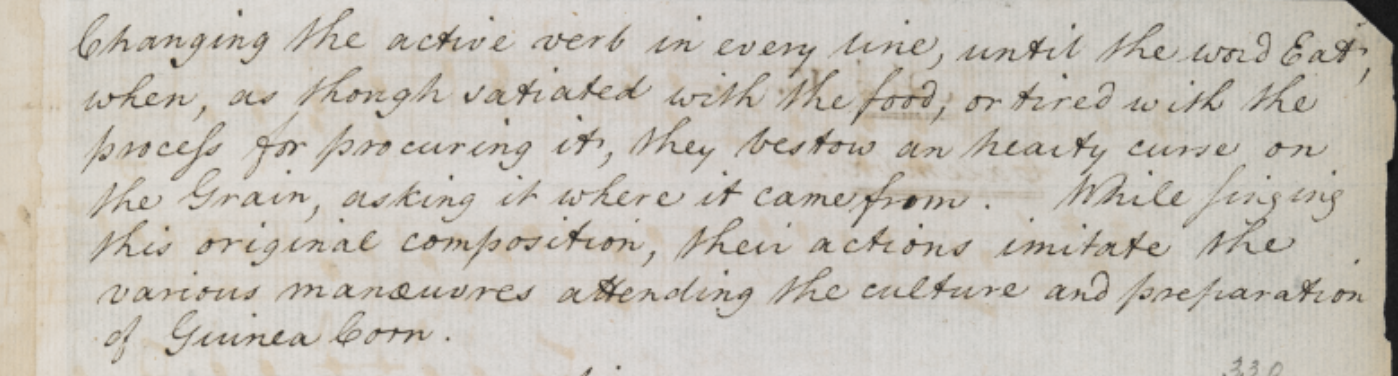 Changing the active verb in every line, until the word Eat,
when, as though satiated with the food, or tired with the
proceſs for procuring it, they bestow an hearty curse on
the Grain, asking it where it came from. While ſinging
this original composition, their actions imitate the
various manœuvres attending the culture and preparation
of Guinea Corn.
330